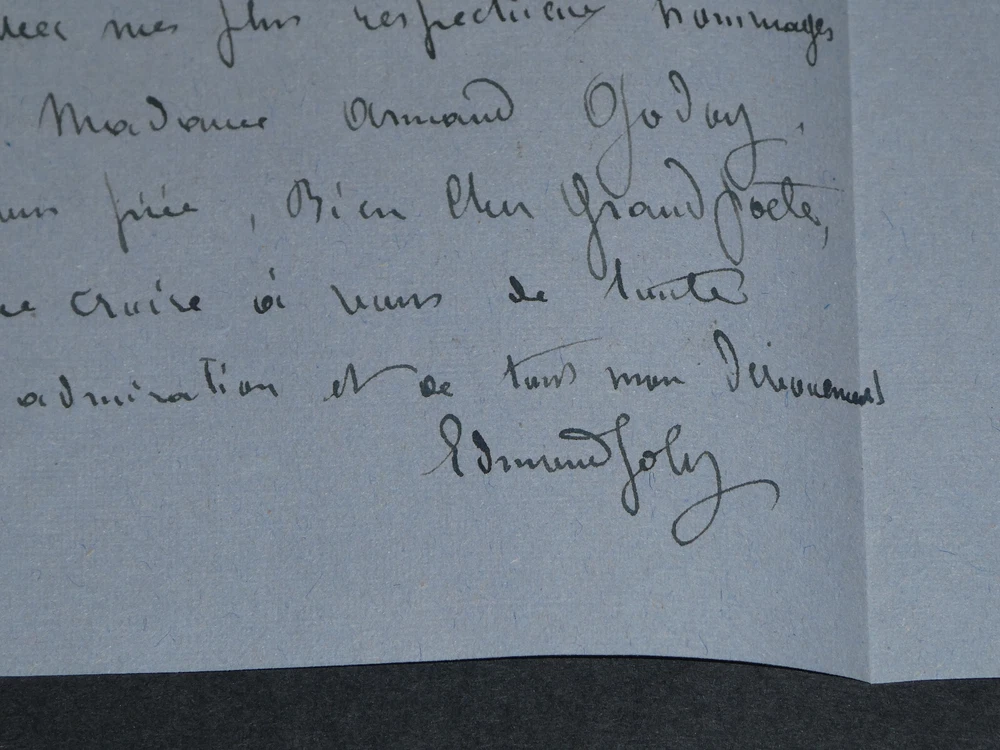 mes plus respectueux hommages
Madame Armand Godoy.
prie, Bien Cher Grand Poète,
croire à vous de toute
admiration et de tout mon dévouement
Edmond Joly